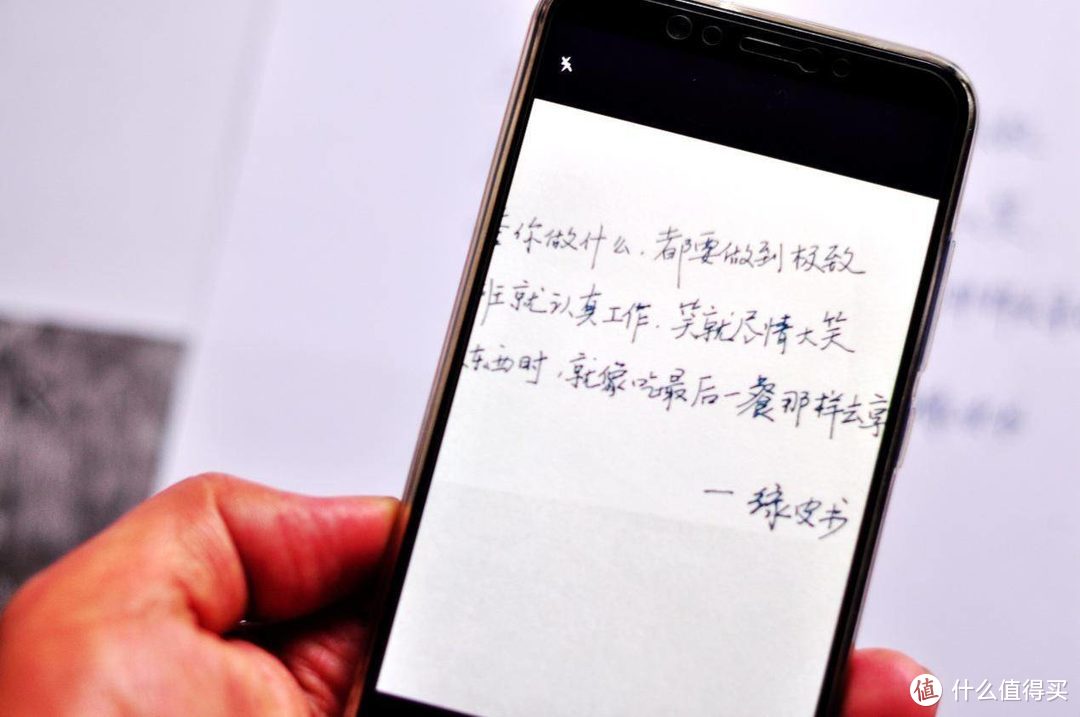 你做什么，都要做到极致
班就认真工作，笑就尽情大笑
东西时，就像吃最后一餐那样去享
一绿皮书
值 什么值得买